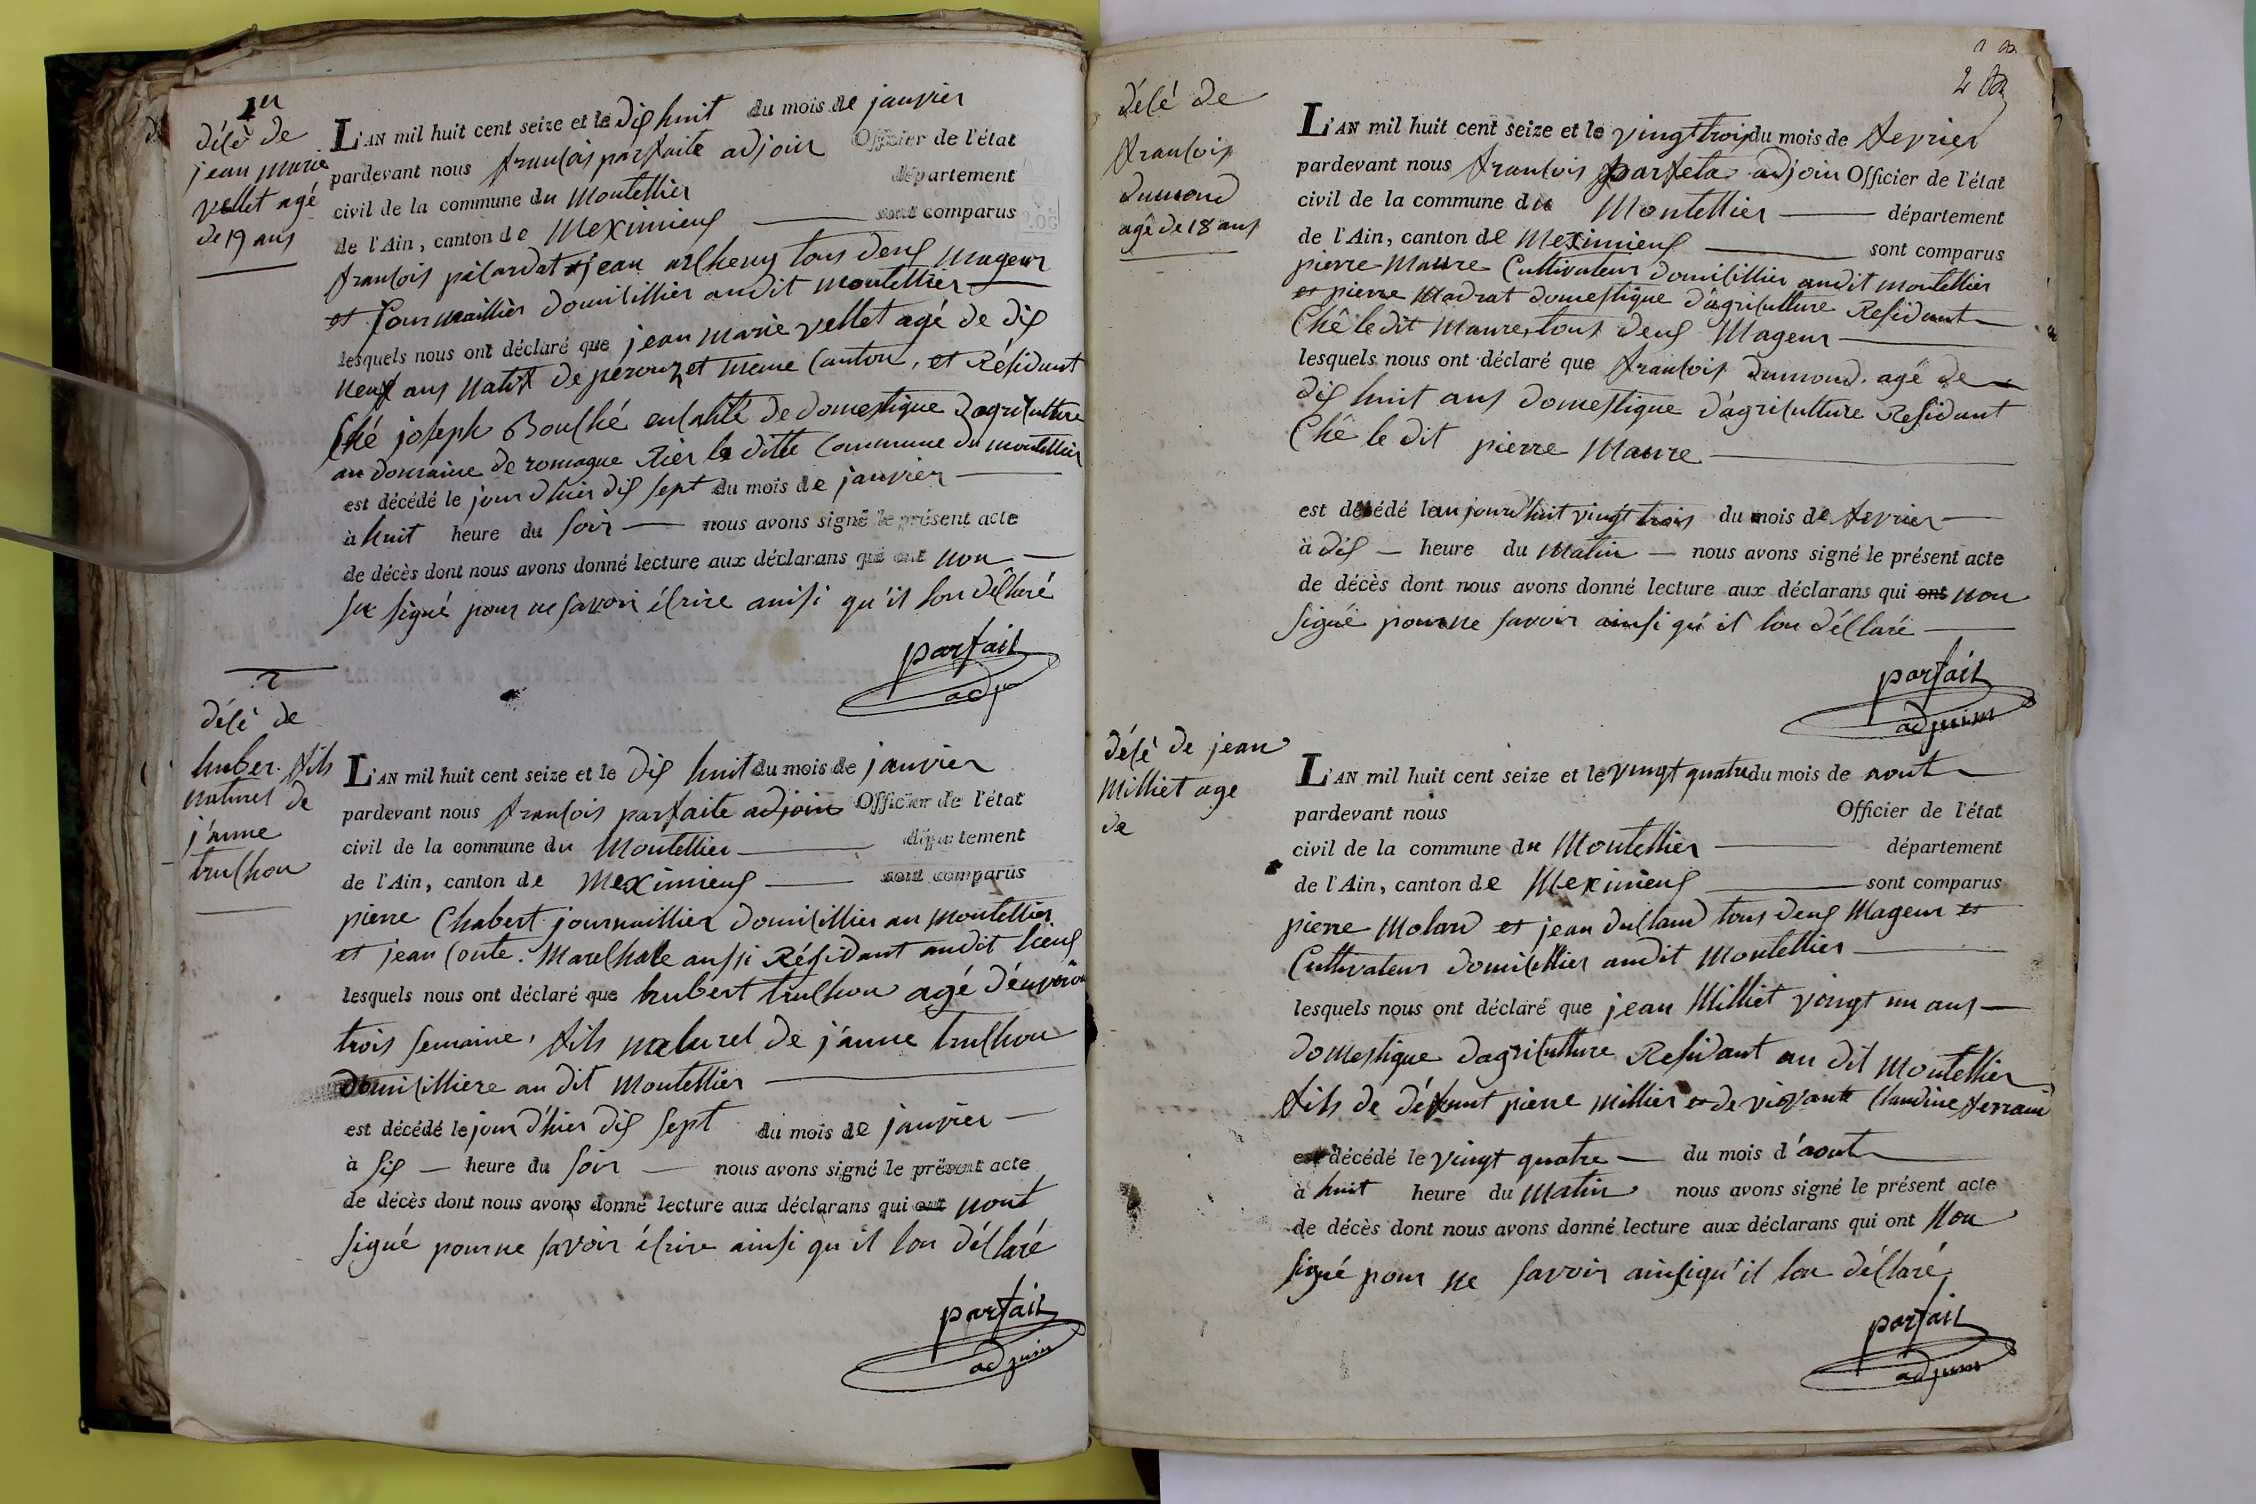 1er
décè de
jean marie
vellet agé
de 19 ans
L'AN mil huit cent seize et le dix huit du mois de janvier
pardevant nous françois parfaite adjoin Officier de l'état
civil de la commune du Montellier département
de l'Ain, canton de Meximieux sont comparus
françois pacardat et jean archeny tous deux mageur
et journaillier domicillier audit montellier
lesquels nous ont déclaré que jean marie vellet agé de dix
neuf ans natif de perouzet meme canton, et Résidant
ché joseph Bouché en calité de domestique d'agriculture
au domaine de romague rier la ditte commune du montellier
est décédé le jour d'hier dix sept du mois de janvier
à huit heure du soir nous avons signé le présent acte
de décès dont nous avons donné lecture aux déclarans qui ont non
su signé pour ne savoir écrire ainsi qu'il lon déclaré
parfait
adjo
2
décè de
huber fils
naturel de
j'anne
truchon
L'AN mil huit cent seize et le dix huit du mois de janvier
pardevant nous françois parfaite adjoin Officier de l'état
civil de la commune du Montellier département
de l'Ain, canton de Meximieux sont comparus
pierre Chabert journaillier domicillier au montellier
et jean conte. Marechalle aussi Résidant audit lieux
lesquels nous ont déclaré que hubert truchon agé d'environ
trois semaine, fils naturel de j'anne truchon
domicilliere au dit montellier
est décédé le jour d'hier dix sept du mois de janvier
à six heure du soir nous avons signé le présent acte
de décès dont nous avons donné lecture aux déclarans qui ont nont
signé pour ne savoir écrire ainsi qu'il lon déclaré
parfait
adjoin
décé de
françois
dumond
agé de 18 ans
L'AN mil huit cent seize et le vingt trois du mois de fevrier
pardevant nous françois parfeta adjoin Officier de l'état
civil de la commune du Montellier département
de l'Ain, canton de Meximieux sont comparus
pierre Maure Cultivateur domicillier audit montellier
et pierre Madrat domestique d'agriculture Residant
Ché le dit Maure, tous deux Mageur
lesquels nous ont déclaré que françois dumond. agé de
dix huit ans domestique d'agriculture Residant
Ché le dit pierre Maure
est décédé le aujourd'huit vingt trois du mois de fevrier
à dix heure du Matin nous avons signé le présent acte
de décès dont nous avons donné lecture aux déclarans qui ont non
signé pour ne savoir ainsi qu'il lon déclaré
parfait
adjoin
décè de jean
Milliet age
de
L'AN mil huit cent seize et le vingt quatre du mois de aout
pardevant nous Officier de l'état
civil de la commune du Montellier département
de l'Ain, canton de Meximieux sont comparus
pierre Molard et jean duclaud tous deux Mageur et
Cultivateur domicillier audit Montellier
lesquels nous ont déclaré que jean Milliet vingt un ans
domestique d'agriculture Residant au dit Montellier
fils de défunt pierre millier et de vivante Claudine ferrand
est décédé le vingt quatre du mois d'aout
à huit heure du Matin nous avons signé le présent acte
de décès dont nous avons donné lecture aux déclarans qui ont Non
signé pour ne savoir ainsi qu'il lon déclaré
parfait
adjoin